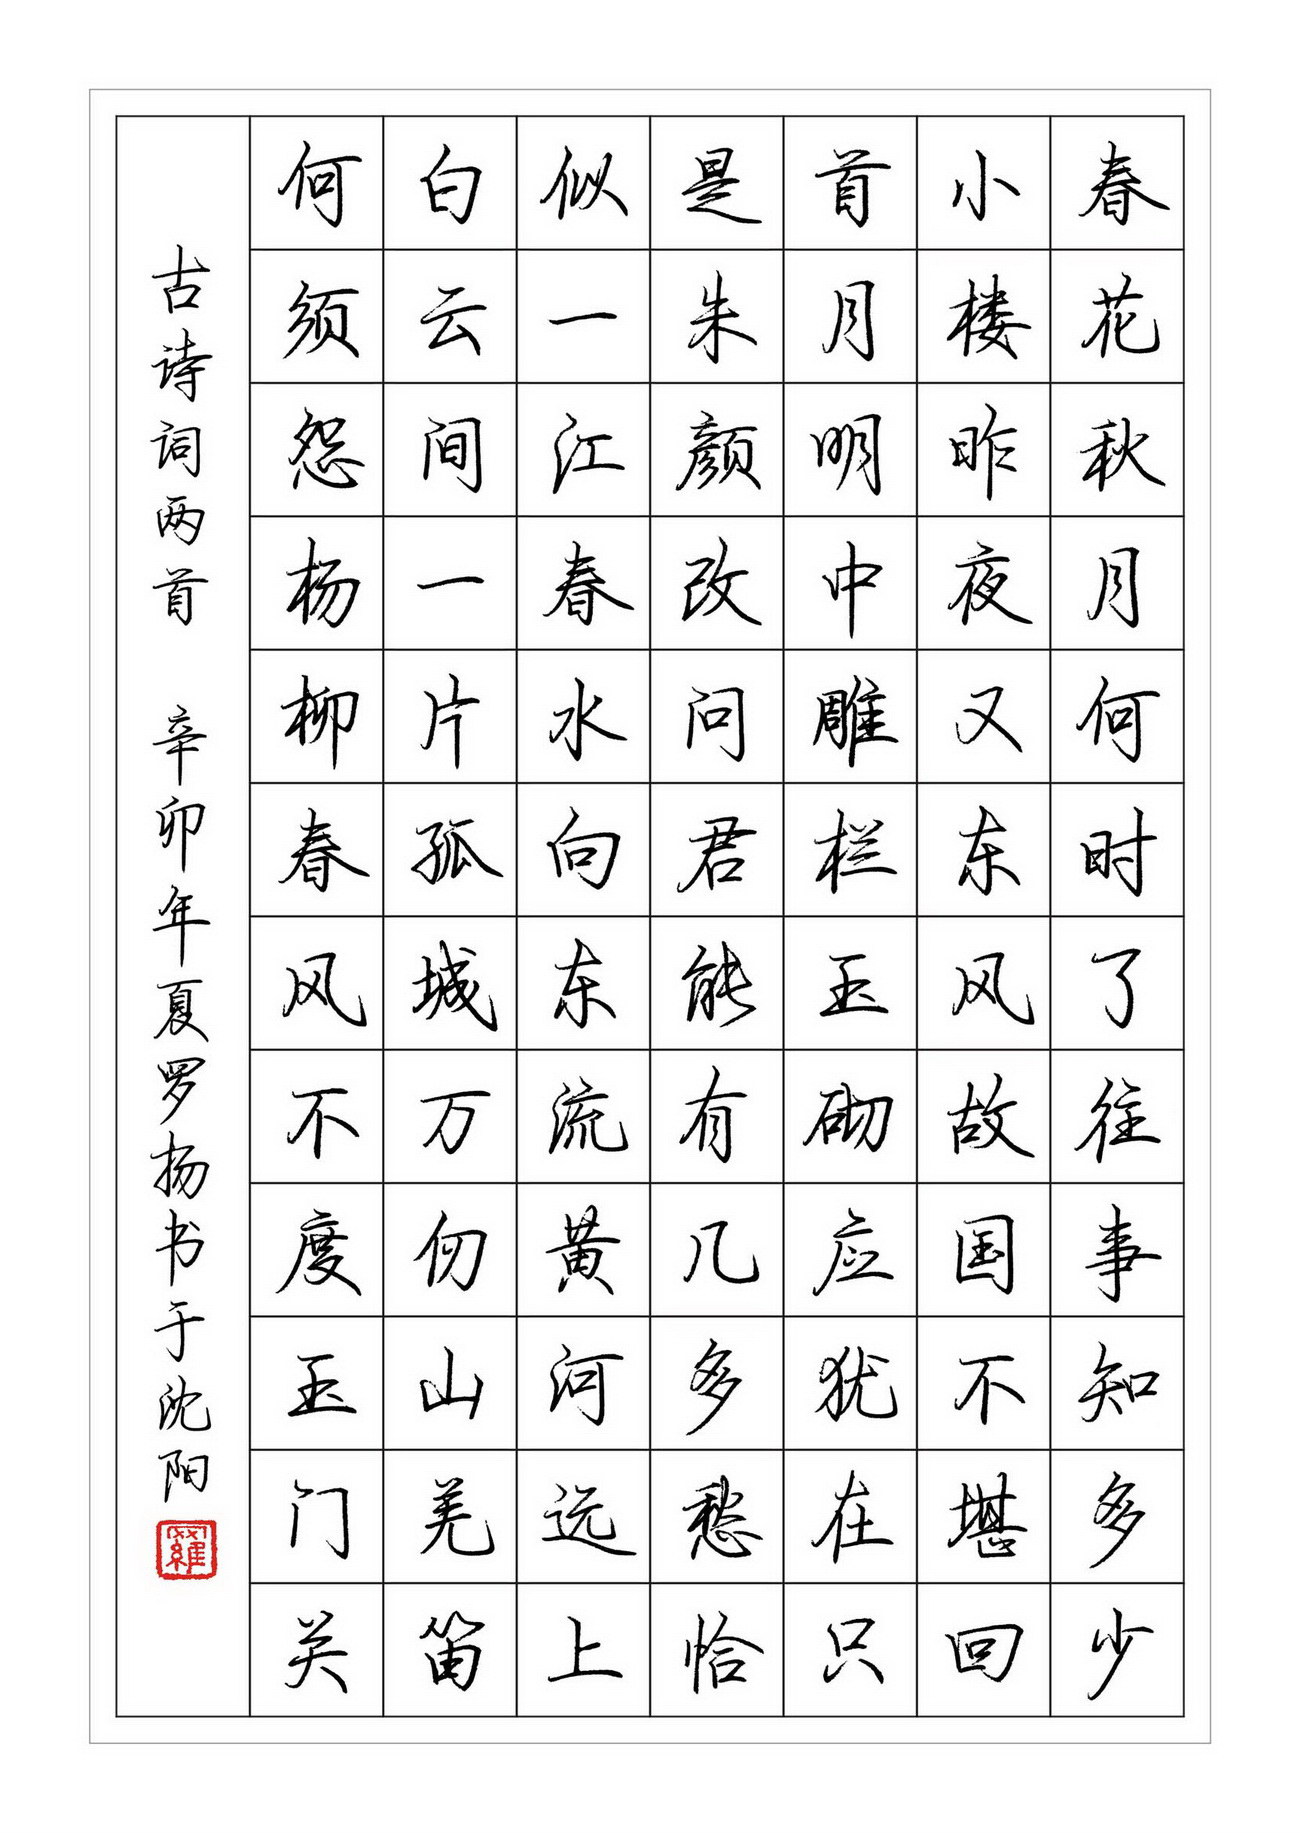 春花秋月何时了往事知多少
小楼昨夜又东风故国不堪回
首月明中雕栏玉砌应犹在只
是朱颜改问君能有几多愁恰
似一江春水向东流黄河远上
白云间一片孤城万仞山羌笛
何须怨杨柳春风不度玉门关
古诗词两首 辛卯年夏罗扬书于沈阳
羅